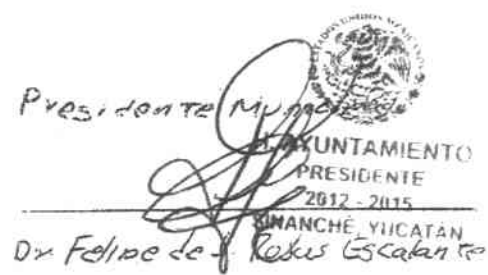 ESTADOS UNIDOS MEXICANOS
Presidente Municipal
H. AYUNTAMIENTO
PRESIDENTE
2012 - 2015
SINANCHÉ, YUCATÁN
Dr. Felipe de J. Rojas Escalante